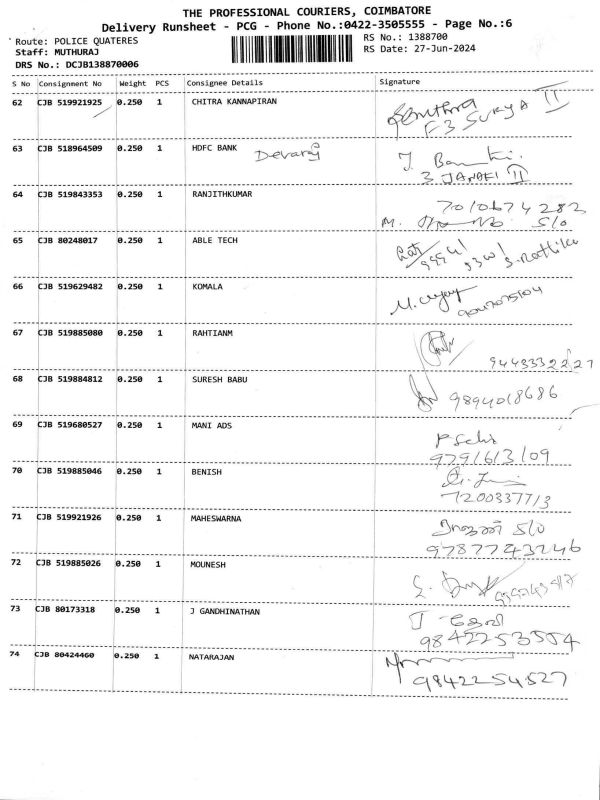 THE PROFESSIONAL COURIERS, COIMBATORE
Delivery Runsheet - PCG - Phone No.:0422-3505555 - Page No.:6
Route: POLICE QUATERES
RS No.: 1388700
Staff: MUTHURAJ
RS Date: 27-Jun-2024
DRS No.: DCJB138870006
S No Consignment No Weight PCS Consignee Details Signature
62 CJB 519921925 0.250 1 CHITRA KANNAPIRAN
F3 SURYA II
63 CJB 518964509 0.250 1 HDFC BANK Devaraj
3 JANAKI II
64 CJB 519843353 0.250 1 RANJITHKUMAR
7010674282
M. S/o
65 CJB 80248017 0.250 1 ABLE TECH
66 CJB 519629482 0.250 1 KOMALA
67 CJB 519885080 0.250 1 RAHTIANM
68 CJB 519884812 0.250 1 SURESH BABU
9894018686
69 CJB 519680527 0.250 1 MANI ADS
9791613109
70 CJB 519885046 0.250 1 BENISH
7200337713
71 CJB 519921926 0.250 1 MAHESWARNA
S/o
9787743246
72 CJB 519885026 0.250 1 MOUNESH
73 CJB 80173318 0.250 1 J GANDHINATHAN
9842253554
74 CJB 80424460 0.250 1 NATARAJAN
9842254527